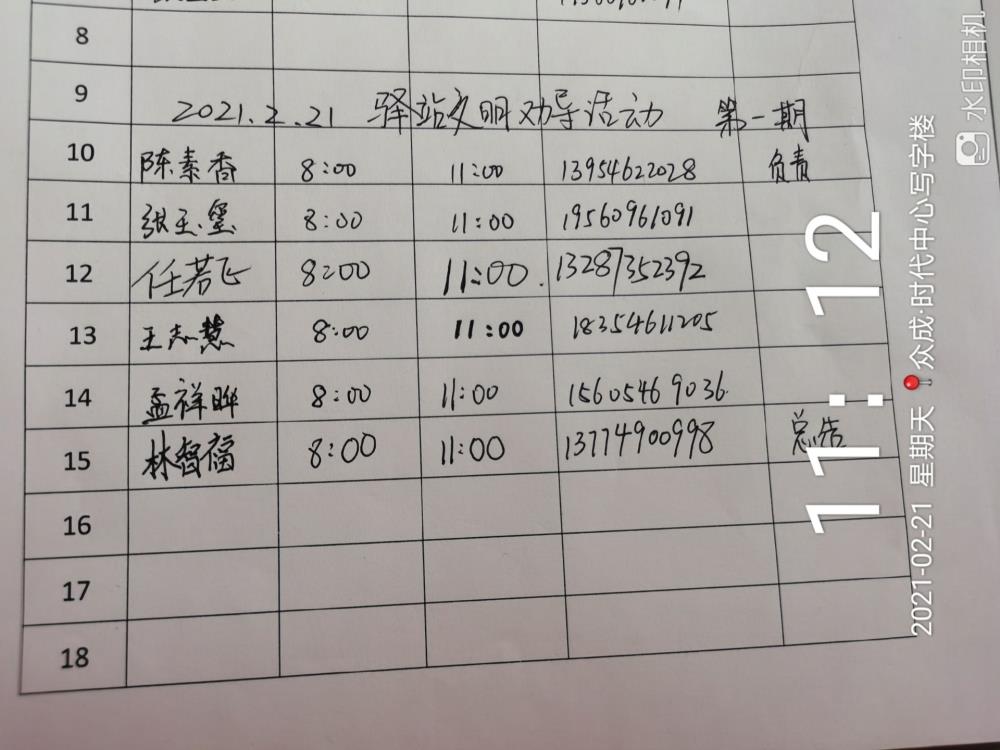 8
9 2021.2.21 驿站文明劝导活动 第一期
10 陈素香 8:00 11:00 13954622028 负责
11 张玉玺 8:00 11:00 19560961091
12 任若飞 8:00 11:00 13287352392
13 王志慧 8:00 11:00 18354611205
14 孟祥晔 8:00 11:00 15605469036
15 林智福 8:00 11:00 13774900998 总结
16
17
18
11:12
2021-02-21 星期天 众成·时代中心写字楼
水印相机